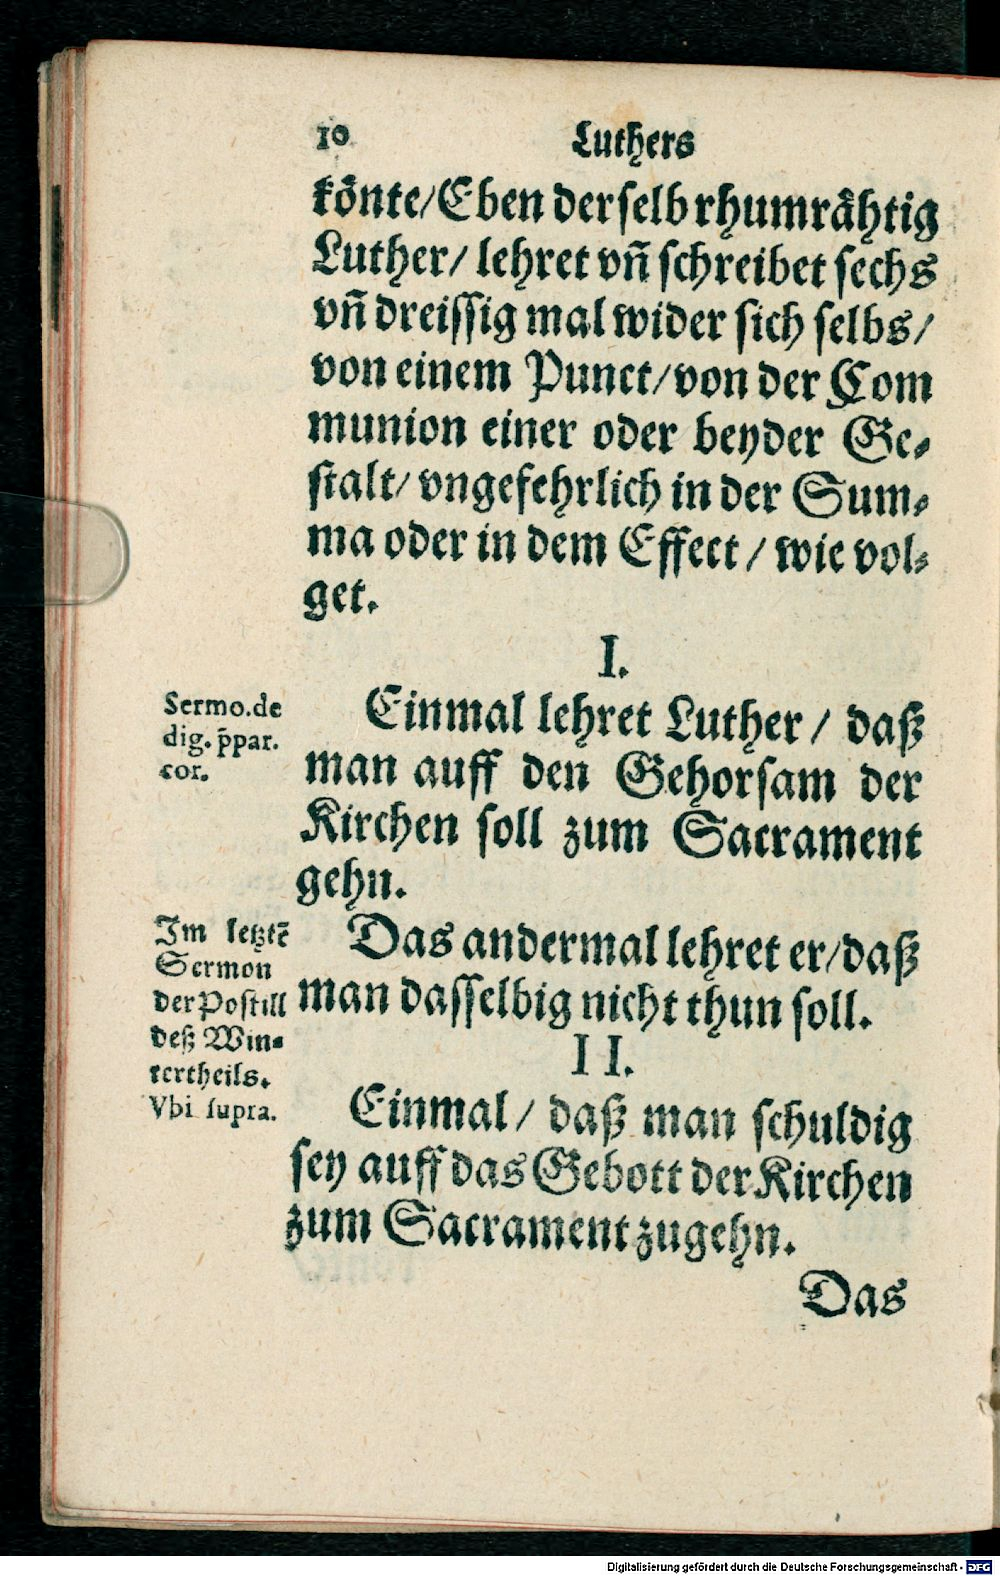 10 Luthers
könte/Eben derselb rhumrähtig
Luther/ lehret vñ schreibet sechs
vñ dreissig mal wider sich selbs/
von einem Punct/von der Com
munion einer oder beyder Ge⸗
stalt/ vngefehrlich in der Sum⸗
ma oder in dem Effect / wie vol⸗
get.
I.
Sermo.de
dig. p̃par.
cor.
Einmal lehret Luther / daß
man auff den Gehorsam der
Kirchen soll zum Sacrament
gehn.
Im letztẽ
Sermon
der Postill
deß Win⸗
tertheils.
Das andermal lehret er/daß
man dasselbig nicht thun soll.
II.
Vbi supra.
Einmal/ daß man schuldig
sey auff das Gebott der Kirchen
zum Sacrament zugehn.
Das
Digitalisierung gefördert durch die Deutsche Forschungsgemeinschaft - DFG